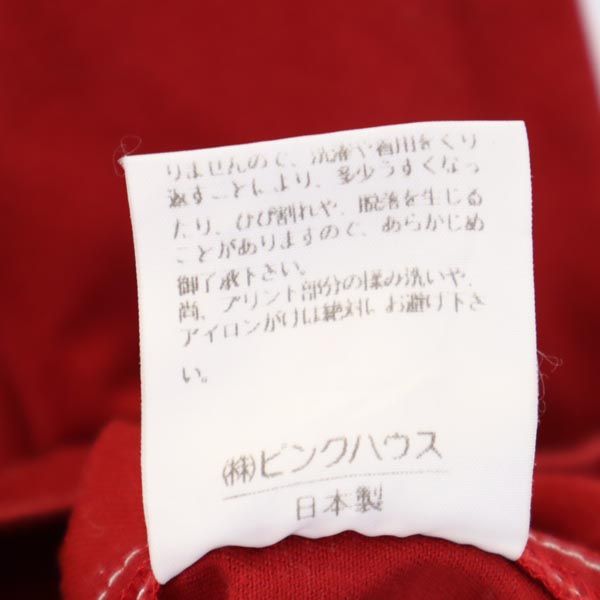 りませんので、洗濯や着用をくり
返すことにより、多少うすくなっ
たり、ひび割れや、脱落を生じる
ことがありますので、あらかじめ
御了承下さい。
尚、プリント部分の揉み洗いや、
アイロンがけは絶対に お避け下さ
い。
㈱ピンクハウス
日本製